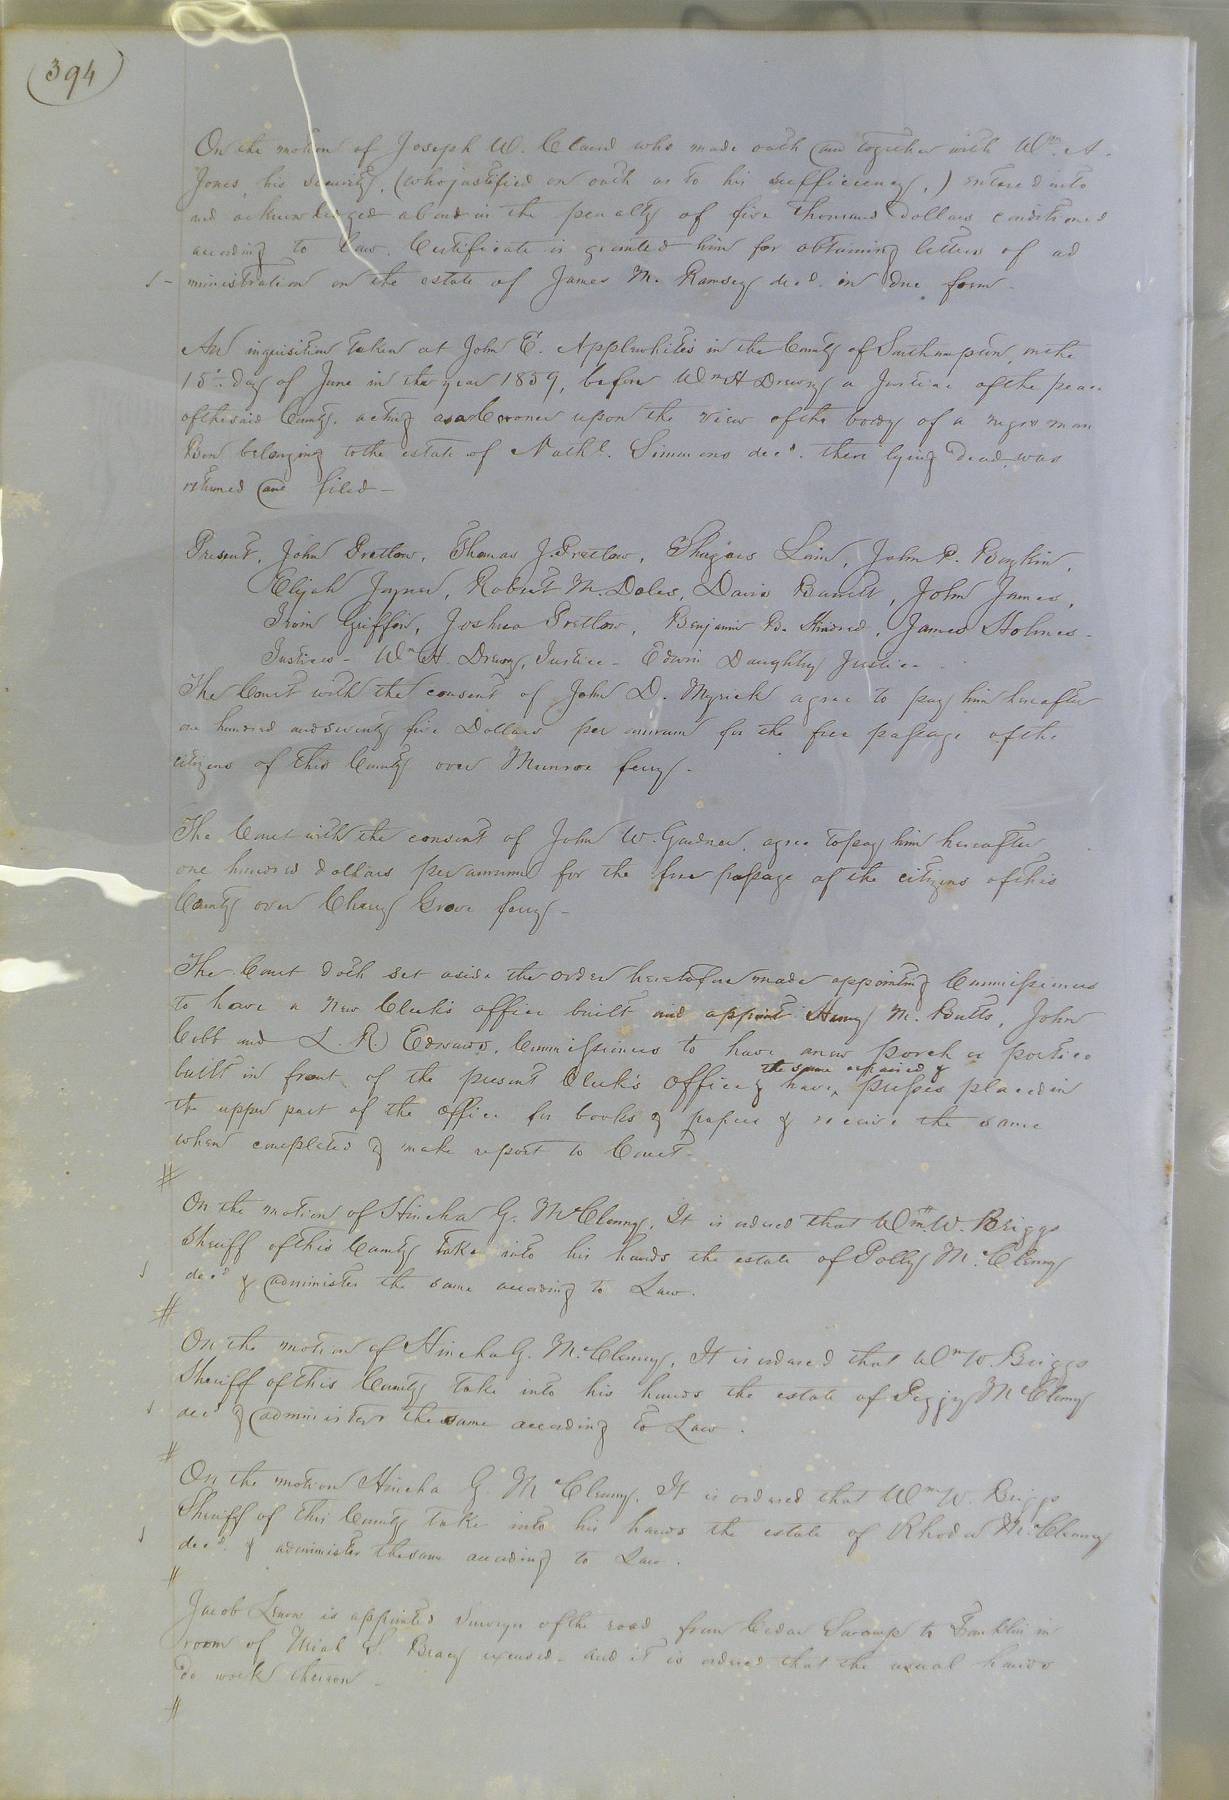 394
On the motion of Joseph W. Claud who made oath and together with Wm. A.
Jones his security, (who justified on oath as to his sufficiency,) entered into
and acknowledged a bond in the penalty of five thousand Dollars conditioned
according to Law. Certificate is granted him for obtaining letters of ad
ministration on the estate of James M. Ramsey decd. in due form -
An inquisition taken at John E. Applewhite's in the County of Southampton, on the
15th. day of June in the year 1859, before Wm H Drewry a Justice of the peace
of the said County, acting as a Coroner upon the view of the body of a negro man
Ben belonging to the estate of Nathl. Simmons decd. there lying dead, was
returned and filed -
Present, John Pretlow, Thomas J. Pretlow, Lain, John P. Boykin,
Elijah Joyner, Robert M. Doles, David Barrett, John James,
Griffin, Joshua Pretlow, Benjamin B. Kindred, James Holmes -
Justices - Wm H. Drewry, Justice - Edwin Daughtry Justice -
The Court with the consent of John D. Myrick agree to pay him hereafter
one hundred and seventy five Dollars per annum for the free passage of the
citizens of this County over Munroe ferry -
The Court with the consent of John W. Gardner, agree to pay him hereafter
one hundred dollars per annum for the free passage of the citizens of this
County over Cherry Grove ferry -
The Court doth set aside the order heretofore made appointing Commissioners
to have a new Clerk's office built and appoint Henry M. Butts, John
Cobb and L. R Edwards, Commissioners to have a new porch or portico
built in front of the present Clerk's office & have the same repaired & presses placed in
the upper part of the office for books & papers & receive the same
when completed & make report to Court -
#
On the motion of Hincha G. McClenny, It is ordered that Wm W. Briggs
Sheriff of this County take into his hands the estate of Polly McClenny
decd & administer the same according to Law.
#
On the motion of Hincha G. McClenny, It is ordered that Wm W. Briggs
Sheriff of this County take into his hands the estate of Peggy McClenny
decd & administer the same according to Law.
#
On the motion Hincha G. McClenny, It is ordered that Wm W. Briggs
Sheriff of this County take into his hands the estate of Rhoda McClenny
decd. & administer the same according to Law.
#
Jacob is appointed Surveyor of the road from Cedar Swamp to Franklin in
room of Mial S. Bracy excused - and it is ordered that the usual hands
do work thereon -
#